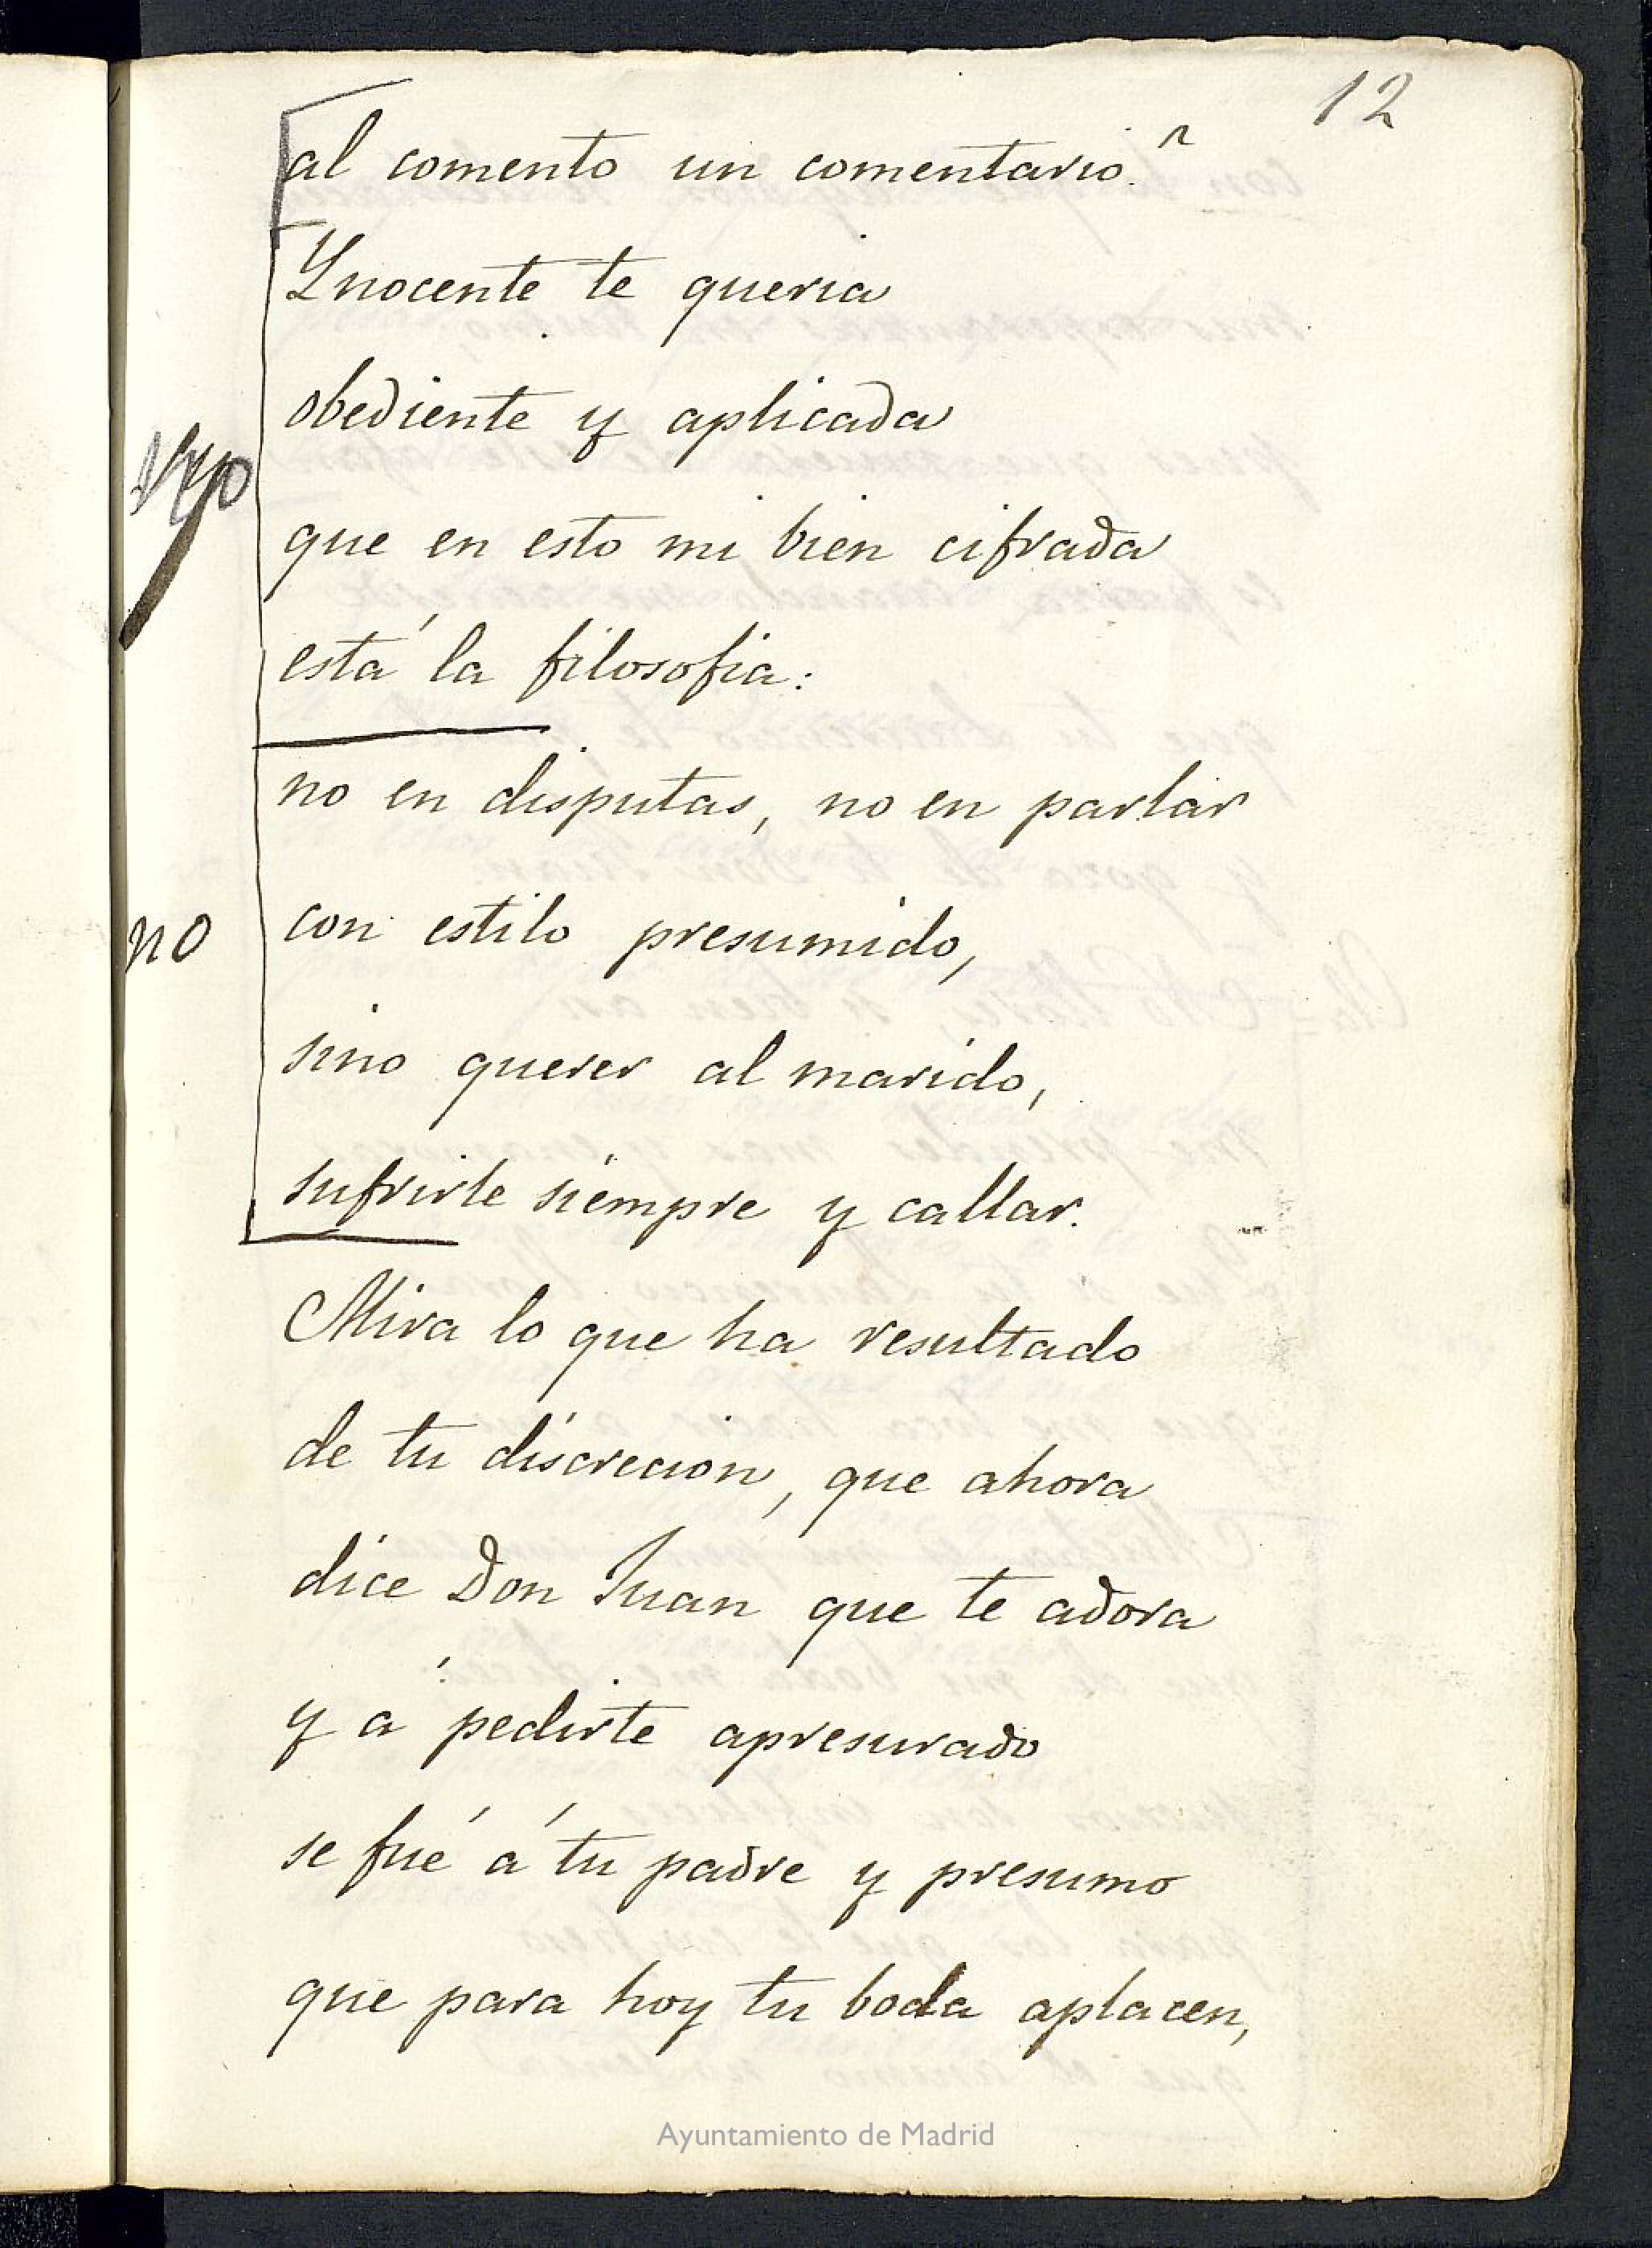 12
al comento un comentario."
Ynocente te queria
obediente y aplicada
que en esto mi bien cifrada
está la filosofia:
no en disputas, no en parlar
no
con estilo presumido,
sino querer al marido,
sufrirle siempre y callar.
Mira lo que ha resultado
de tu discrecion, que ahora
dice Don Juan que te adora
y á pedirte apresurado
se fué á tu padre y presumo
que para hoy tu boda aplacen,
Ayuntamiento de Madrid